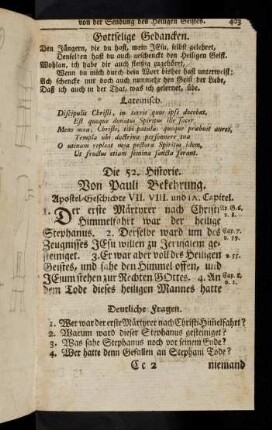 von der Sendung des Heiligen Geistes. 403
Gottselige Gedancken.
Den Jüngern, die du hast, mein JEsu, selbst gelehret,
Denselben hast du auch geschenckt den Heiligen Geist.
Wohlan, ich habe dir auch fleißig zugehöret,
Wenn du mich durch dein Wort bisher hast unterweist:
Ach schencke mir doch auch nunmehr den Geist der Liebe,
Daß ich auch in der That, was ich gelernet, übe.
Lateinisch.
Discipulis Christi, in terris quos ipse docebat,
Est quoque donatus Spiritus ille sacer.
Mens mea, Christe, tibi patulas quoque præbuit aures,
Templa ubi doctrina personuere tua
O utinam repleat mea pectora Spiritus idem,
Ut fructus etiam semina sancta ferant.
Die 52. Historie.
Von Pauli Bekehrung.
Apostel-Geschichte VII. VIII. und IX. Capitel.
1. Der erste Märtyrer nach Christi
Himmelfahrt war der heilige
Stephanus. 2. Derselbe ward um des
Zeugnisses JEsu willen zu Jerusalem ge-
steiniget. 3. Er aber voll des Heiligen
Geistes, und sahe den Himmel offen, und
JEsum stehen zur Rechten GOttes. 4. An
dem Tode dieses heiligen Mannes hatte
Deutliche Fragen.
1. Wer war der erste Märtyrer nach Christi Himelfahrt?
2. Warum ward dieser Stephanus gesteiniget?
3. Was sahe Stephanus noch vor seinem Ende?
4. Wer hatte denn Gefallen an Stephani Tode?
Cc 2 niemand